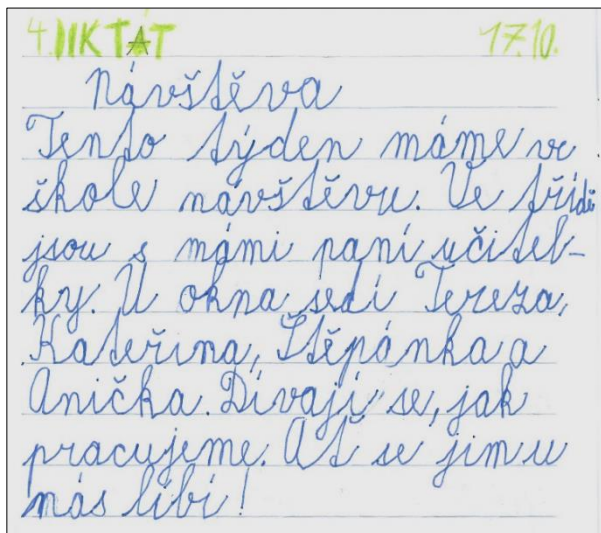 4. DIKTÁT 17.10.
Návštěva
Tento týden máme ve
škole návštěvu. Ve třídě
jsou s námi paní učitel-
ky. U okna sedí Tereza,
Kateřina, Štěpánka a
Anička. Dívají se, jak
pracujeme. Ať se jim u
nás líbí!